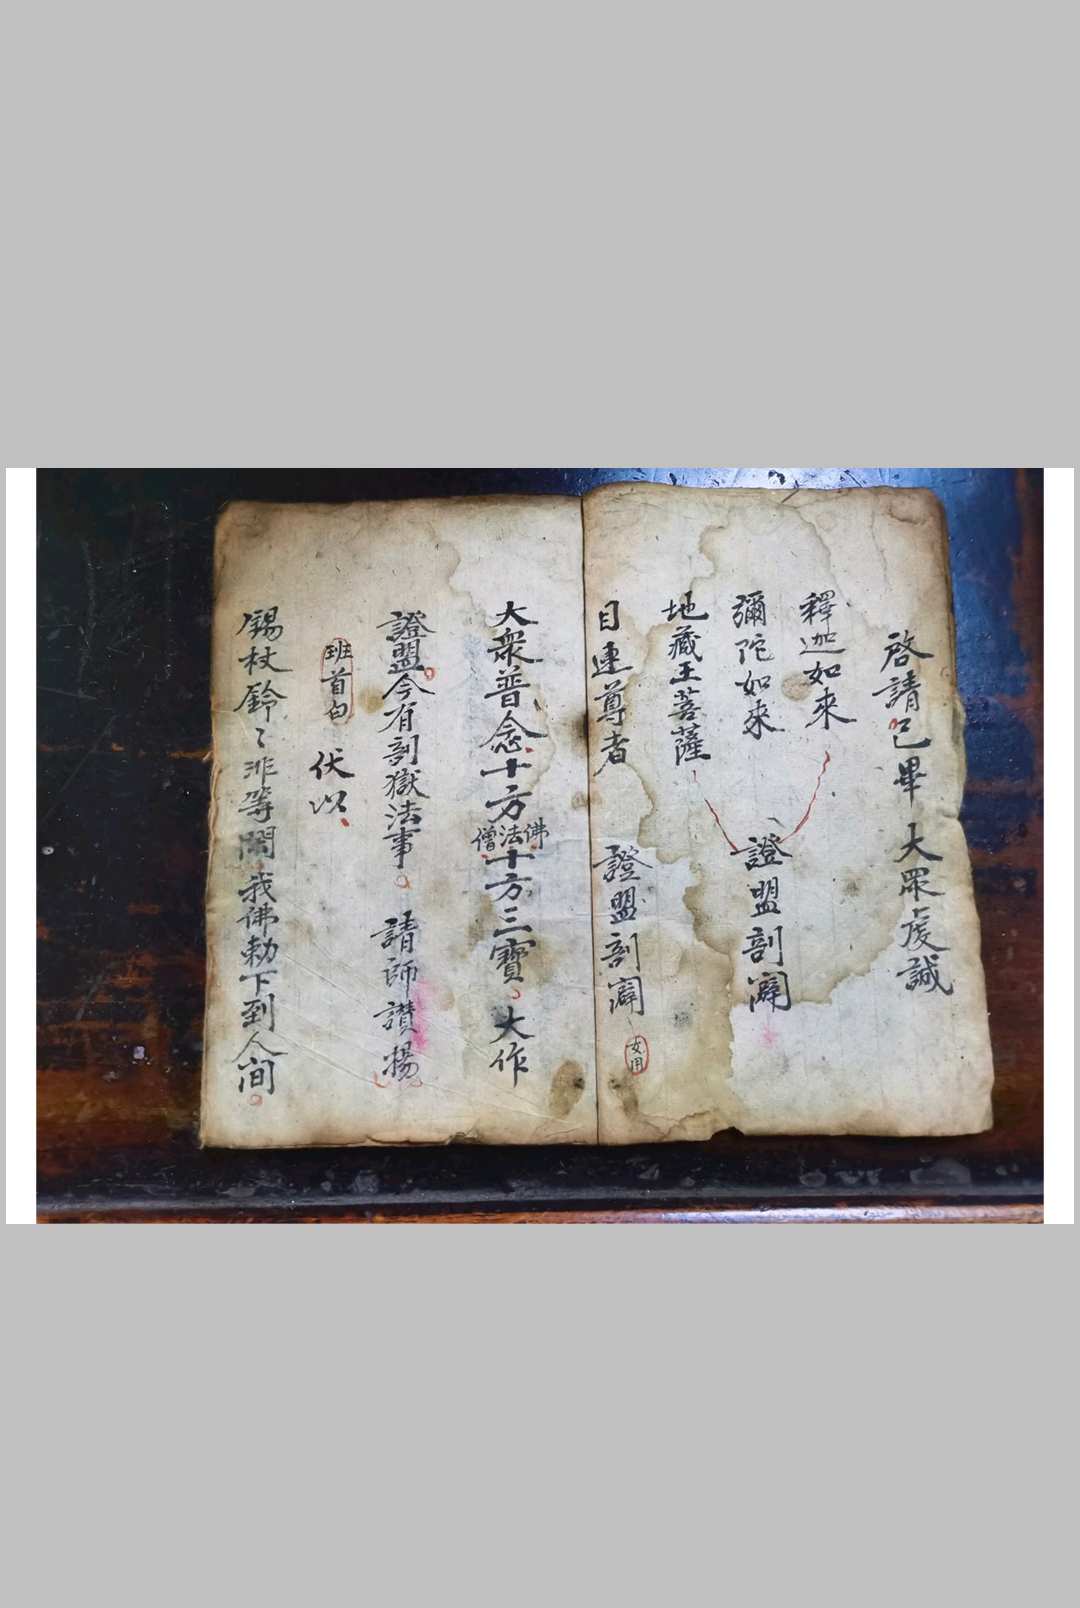 啓請已畢 大眾虔誠
釋迦如來
彌陀如來 證盟剖
地藏王菩薩
目連尊者 證盟剖
女用
大衆普念十方佛法僧十方三寶 大作
證盟今有剖獄法事 請師讃揚
班首白 伏以
錫杖鈴〻非等閑我佛勅下到人间